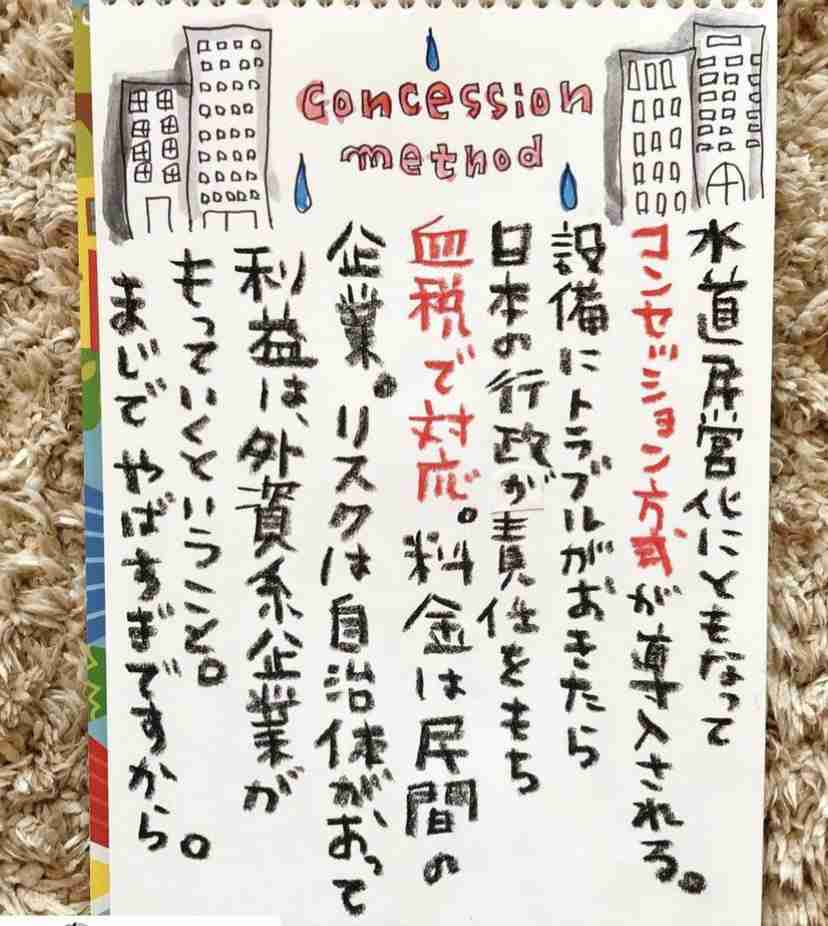 concession
method
水道民営化にともなって
コンセッション方式が導入される。
設備にトラブルがおきたら
日本の行政が責任をもち
血税で対応。料金は民間の
企業。リスクは自治体がおって
利益は、外資系企業が
もっていくということ。
まじでやばすぎですから。